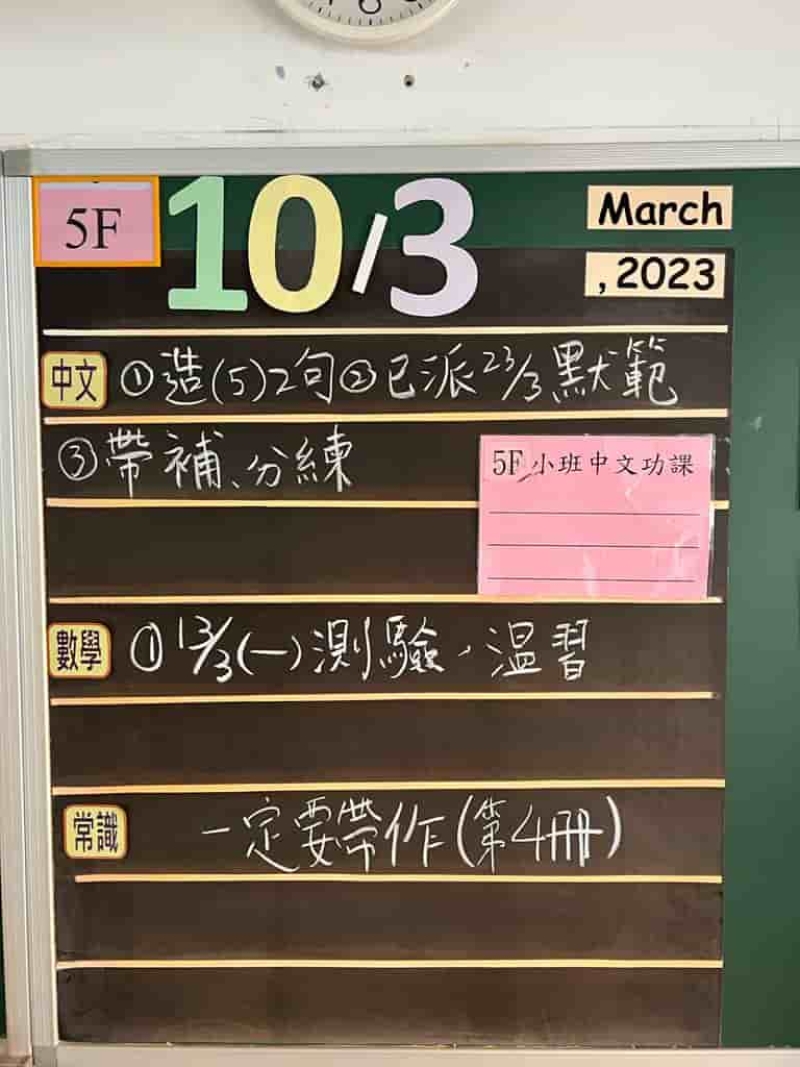 5F 10/3 March
, 2023
中文 ①造(5)2句②已派23/3默範
③帶補、分練
5F小班中文功課
數學 ①13/3(一)測驗,溫習
常識 一定要帶作(第4冊)